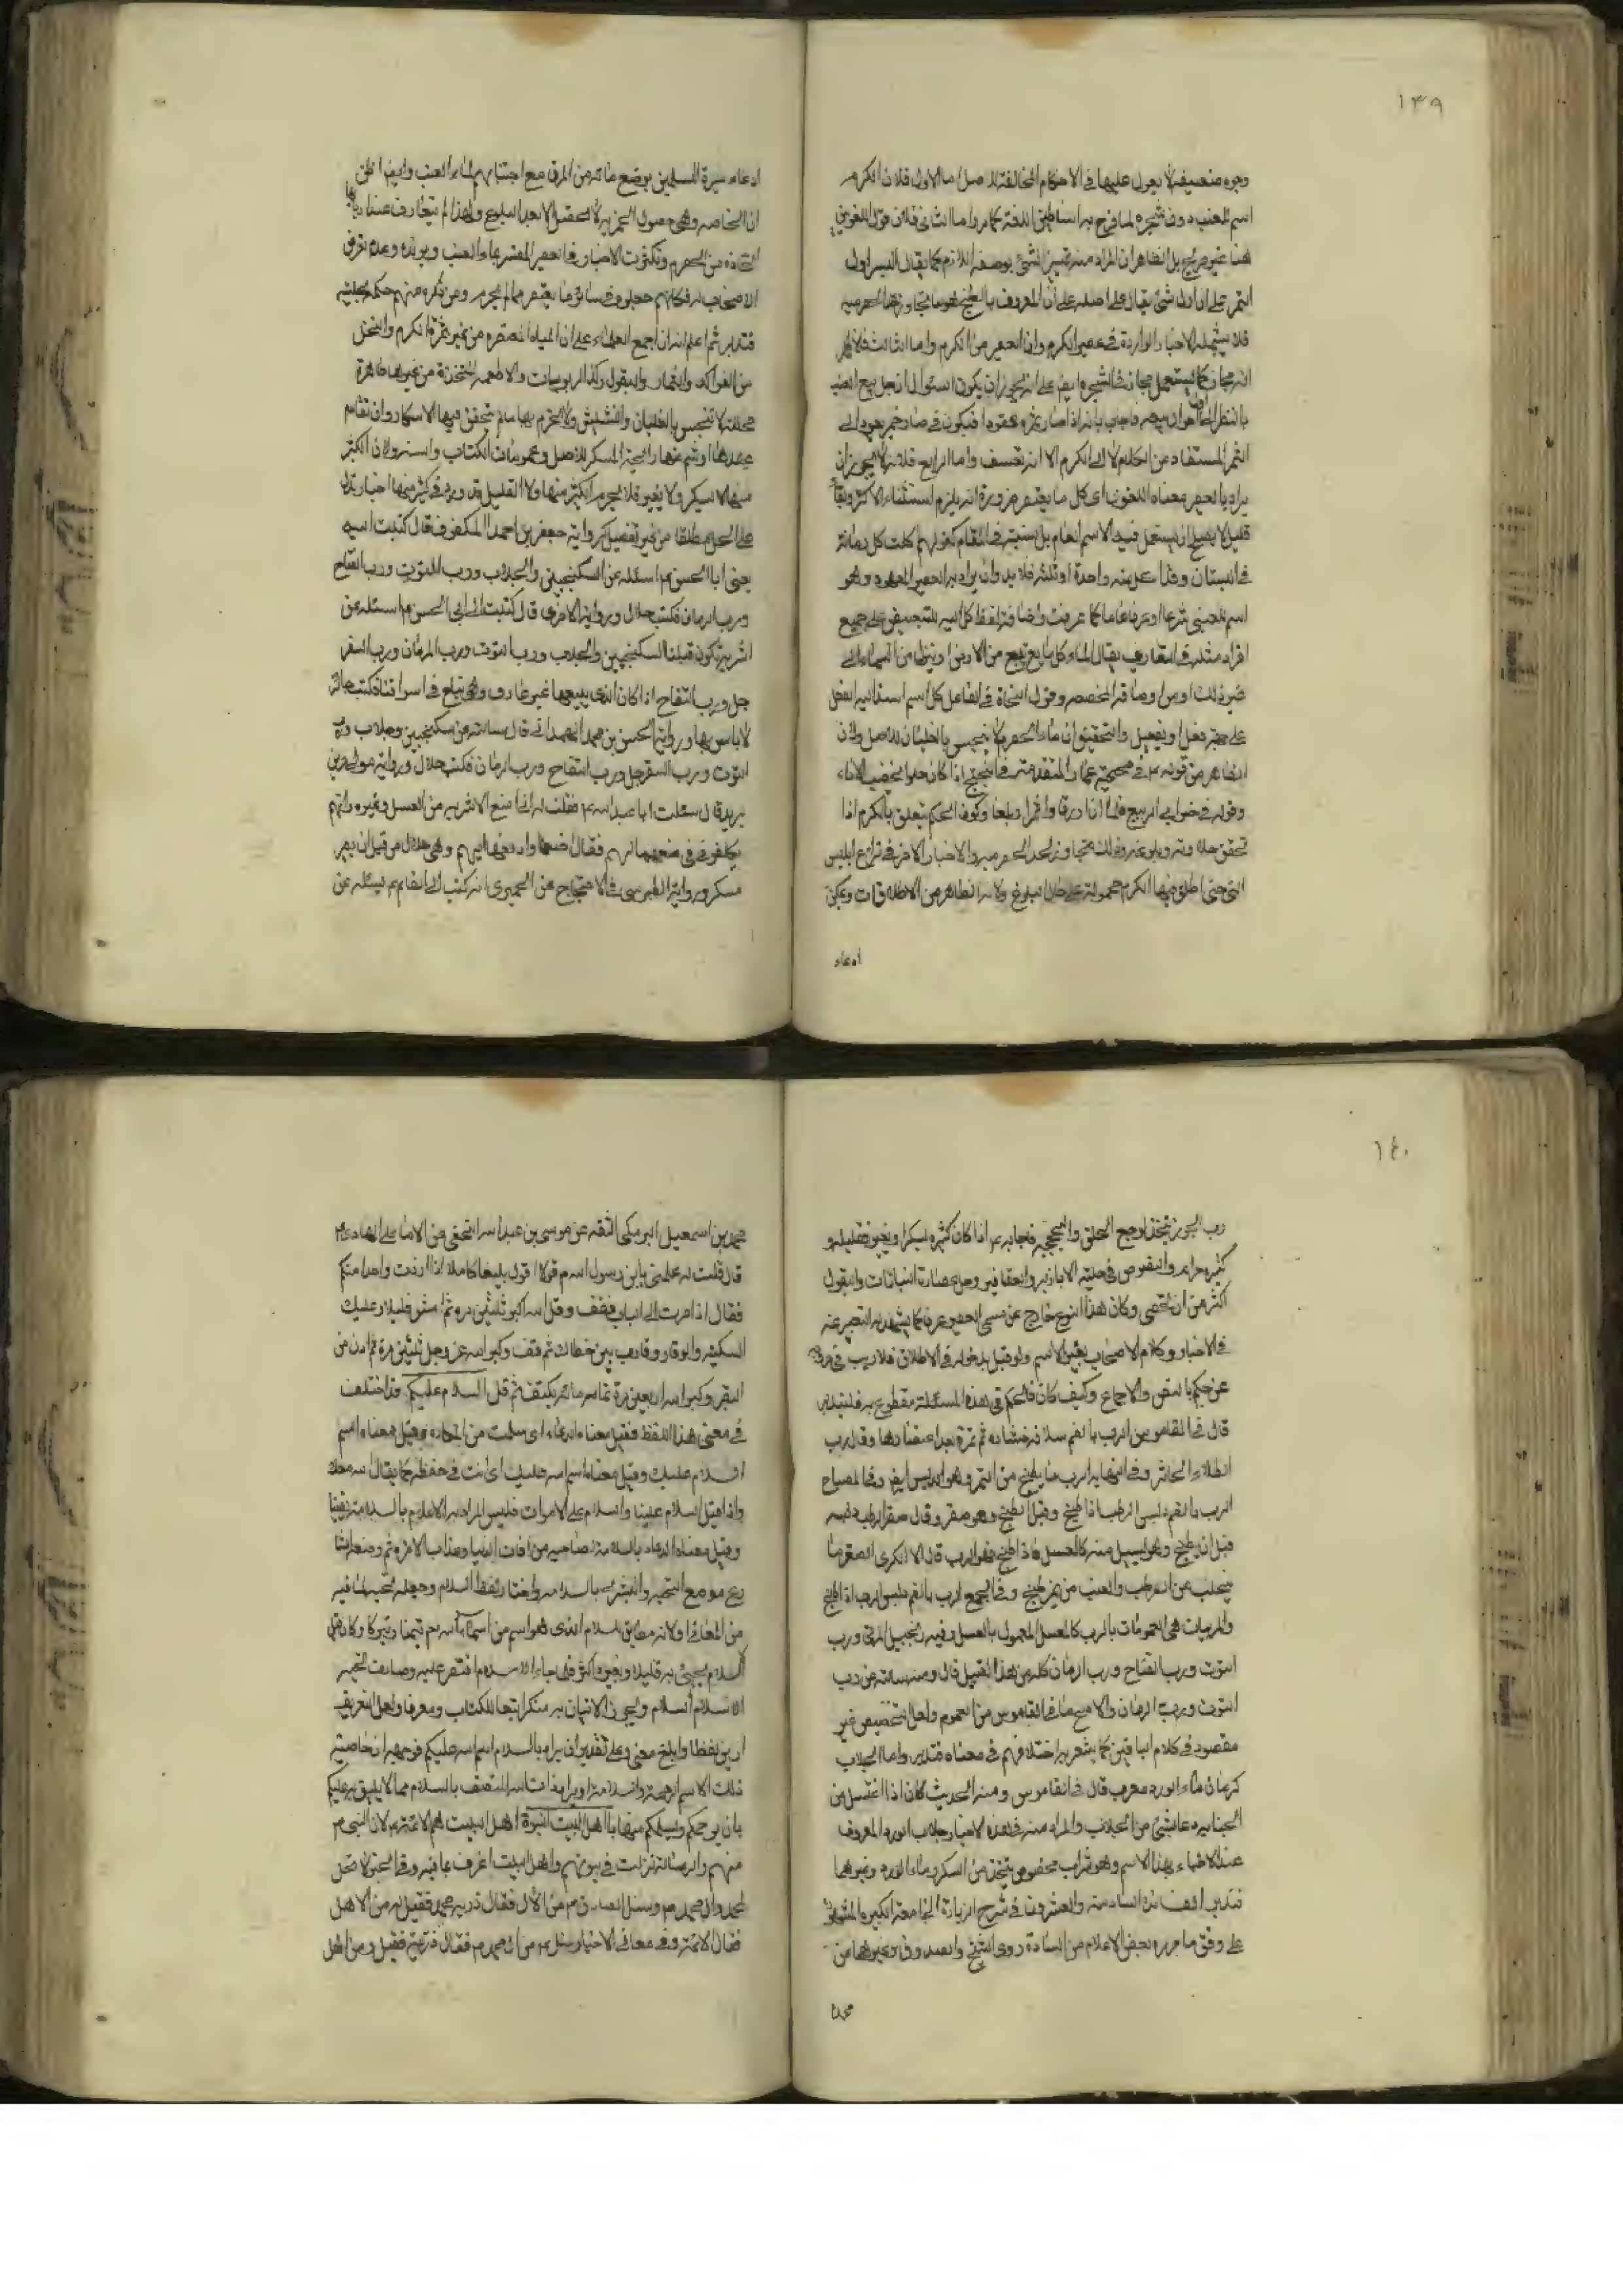 ١٣٩
وجوه ضعيفة لا يعول عليها في الاحكام المخالفة للاصل اما الاول فلان الكرم
اسم للعنب دون شجره لما صرح به اساطين اللغة كما مر واما الثاني فلان قول اللغويين
هنا غير صريح بل الظاهر ان المراد منه تمييز الشئ بوصفه اللازم كما يقال البسر اول
التمر على ان اول شئ يقال على اصله على ان المعروف بالطبخ هو ما تجاوز هذا الحصرميه
فلا يشمله الاخبار الواردة في عصير الكرم وان العصير من الكرم واما الثالث فلانه
انه مجاز كما يستعمل مجازا في الشجره ايضا على انه يجوز ان يكون السئوال لاجل بيع العنب
بالنظر الى فاجاب بانه اذا صار ثمره عقودا فيكون في صار ضمير يعود الى
الثمر المستفاد من الكلام لا الى الكرم الا انه تعسف واما الرابع فلانه لا يجوز ان
يراد بالعصير معناه اللغوى اى كل ما يعصر ضرورة انه يلزم استثناء الاكثر وبقاء
قليل لا يصلح ان يستعمل فيه الاسم العام بل نسبته في المقام كقولهم اكلت كل رمانة
في البستان وقد اكل منه واحدة او ثلثه فلا بد وان يراد به العصير المعهود وهو
اسم للعنبى شرعا او عرفا عاما كما عرفت واضافة لفظ كل اليه للتنصيص على جميع
افراد مثله في التعارف يقال الماء كل ما ينبع من الارض او ينزل من السماء الى
غير ذلك
على جهة فعل او يفعيل والتحقيق ان ماء الحصرم لا ينجس بالغليان للاصل ولان
الظاهر من قوله ع في صحيحة عمار المتقدمة في البختج اذا كان حلوا يخضب الاناء
وقوله في خبر ابى الربيع فلما اذا اورقا واثمرا وبلغا وكون الحكم تعلق بالكرم اذا
تحقق حلاوته وبلوغه وذلك بتجاوزه الحد الحصرميه والاخبار الاخر في نزاع ابليس
التي حتى اطلق فيها الكرم محمولة على حال البلوغ ولانه الظاهر من الاطلاقات ويمكن
ادعاء
ادعاء سيرة المسلمين بوضع مائه من المرق مع اجتنابهم لماء العنب وايضا الظن
ان الخاصه وهى حصول الخمريه لا تحصل الا بعد البلوغ ولهذا لم يتعارف عندنا
اتخاذه من الحصرم وتكثرت الاخبار في العصير المفسر بماء العنب ويويده وعدم تعرض
الاصحاب له فكانهم جعلوه في سائر ما يعصر مما لم يحرم ومن ذكره منهم حكم بحليته
فتدبر ثم اعلم انه ان اجمع العلماء على ان المياه المعتصره من غير ثمرة الكرم والنخل
من الفواكه والثمار والبقول وكذا الربوبيات والاطعمه المتخذة من غيرها طاهرة
محللة لا تنجس بالغليان والنشيش ولا تحرم بها ما لم يتحقق فيها الاسكار وان تقادم
عهدها او شم منها رائحة المسكر للاصل وعمومات الكتاب والسنه ولان الكثير
منها لا يسكر ولا يغير فلا يحرم الكثير منها ولا القليل وقد ورد في كثير منها اخبار تدل
على الحل مطلقا من غير تفصيل كرواية جعفر بن احمد المكفوف قال كتبت اليه
يعنى ابا الحسن م اسئله عن السكنجبين والجلاب ورب التوت ورب التفاح
ورب الرمان فكتب حلال وروايته الاخرى قال كتبت الى ابى الحسن م اسئله عن
اشربة تكون قبلنا السكنجبين والجلاب ورب التوت ورب الرمان ورب السفر
جل ورب التفاح اذا كان الذى يبيعها غير عارف وهى تباع في اسواقنا فكتب جائز
لا باس بها ورواية الحسن بن محمد الهمدانى قال سالته عن سكنجبين وجلاب ورب
التوت ورب السفرجل ورب التفاح ورب الرمان فكتب حلال ورواية مولى حر بن
يزيد قال سئلت ابا عبد الله م فقلت له انى اصنع الاشربه من العسل وغيره وانهم
يكلفونى صنعها لهم فقال اصنعها وادفعها اليهم وهى حلال من قبل ان يصير
مسكرا ورواية الطبرسى في الاحتجاج عن الحميرى انه كتب الى القائم م يسئله عن
١٤٠
رب الجوز يتخذ لوجع الحلق والبحبحه فاجابه م اذا كان كثيره يسكر او يغير فقليله و
كثيره حرام والنصوص في حلية الابازير والعقاقير وجل عصارات النباتات والبقول
اكثر من ان تحصى وكان هذا النوع خارج عن مسمى العصير عرفا كما يشهد به التعبير عنه
في الاخبار وكلام الاصحاب بغير الاسم ولو قيل بدخوله في الاطلاق فلا ريب في خروجه
عن حكم بالنص والاجماع وكيف كان فالحكم في هذه المسئلة مقطوع به فليتدبر
قال في القاموس الرب بالضم سلافة خثارة كل ثمرة بعد اعتصارها وقال رب
الطلاء الخاثر وفي النهايه الرب ما يطبخ من التمر وهو الدبس ايضا وفي المصباح
الرب بالضم دبس الرطب اذا طبخ وقبل الطبخ وهو صقر وقال صقر الرطب دبسه
قبل ان يطبخ وهو ما يسيل منه كالعسل فاذا طبخ فهو الرب قال الازهرى الصقر ما
يتحلب من الرطب والعنب من غير طبخ وفي المجمع الرب بالضم دبس الرطب اذا طبخ
والمربيات هى المعمولات بالرب كالمعسل المعمول بالعسل وفيه زنجبيل المربى ورب
التوت ورب التفاح ورب الرمان كله من هذا القبيل قال ومنه سالته عن رب
التوت ورب الرمان والاصح ما في القاموس من العموم ولعل التخصيص غير
مقصود في كلام الباقين كما يشعر به اختلافهم في معناه فتدبر واما الجلاب
كرمان ماء الورد معرب قال في القاموس ومنه الحديث كان اذا اغتسل من
الجنابه دعا بشئ من الجلاب والمراد منه في هذه الاخبار جلاب الورد المعروف
عند الاطباء بهذا الاسم وهو شراب مخصوص يتخذ من السكر وماء الورد وغيرهما
فتدبر الفائدة السادسة والعشرون في شرح الزيارة الجامعة الكبيرة المنقولة
على وفق ما حرره بعض الاعلام من السادة روى الشيخ والصدوق وغيرهما عن
محمد
محمد بن اسمعيل البرمكى الثقه عن موسى بن عبد الله النخعى عن الامام على الهادى م
قال قلت له علمنى يا بن رسول الله م قولا اقول بليغا كاملا اذا زرت واحدا منكم
فقال اذا صرت الى الباب فقف وقل الله اكبر ثلثين مرة ثم امش قليلا وعليك
السكينه والوقار وقارب بين خطاك ثم قف وكبر الله عز وجل ثلثين مرة ثم ادن من
القبر وكبر الله اربعين مرة تمام مائة تكبيرة ثم قل السلام عليكم قد اختلف
في معنى هذا اللفظ فقيل معناه الدعاء اى سلمت من المكاره وقيل معناه اسم
السلام عليك وقيل معناه اسم الله عليك اى انت في حفظه كما يقال الله معك
واذا قيل السلام علينا والسلام على الاموات فليس المراد به الاعلام بالسلامة يقينا
وقيل معناه الدعاء بالسلامة لصاحبه من افات الدنيا وعذاب الاخرة ثم وضعه الشا
رع موضع التحيه والبشرى بالسلامه واختار لفظ السلام وجعله تحية لما فيه
من المعانى ولانه مطابق للسلام الذى هو اسم من اسماء الله تعالى تيمنا وتبركا وكان قبل
السلام يحيى به قليلا وبغيره اكثر فلما جاء الاسلام اقتصر عليه وصارت تحية
الاسلام السلام ويجوز الاتيان به منكرا تبعا للكتاب ومعرفا ولعل التعريف
ازين لفظا وابلغ معنى وعلى تقدير ان يراد بالسلام اسم الله عليكم فوجهه ان خاصية
ذلك الاسم الرحمة والسلامة او يراد ذات الله المتصف بالسلام مما لا يليق به عليكم
بان يرحمكم ويسلمكم منها يا اهل البيت النبوة اهل البيت هم الائمة م لان النبى م
منهم والرسالة نزلت في بيوتهم واهل البيت اعرف بما فيه وفي الجنى لا تحل
لمحمد وال محمد م وسئل الصادق م من الال فقال ذرية محمد فقيل له من الاهل
فقال الائمة وفي معانى الاخبار سئل م من ال محمد م فقال ذريته فقيل ومن اهل